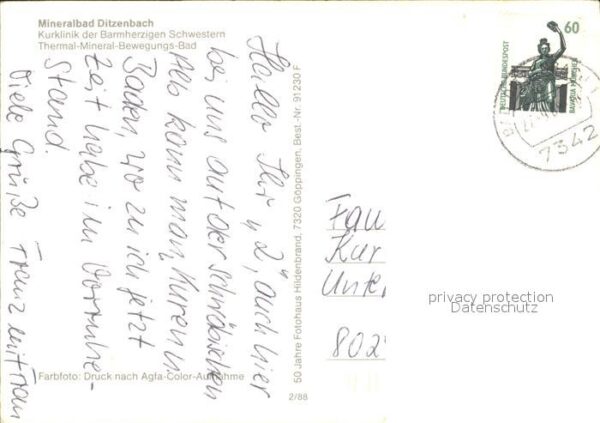 Mineralbad Ditzenbach
Kurklinik der Barmherzigen Schwestern
Thermal-Mineral-Bewegungs-Bad
Hallo Ihr "2", auch hier
bei uns auf der schwäbischen
Alb kann man Kuren u.
Baden, wozu ich jetzt
Zeit habe im Vorruhe-
stand.
Viele Grüße Franz mit Frau
Farbfoto: Druck nach Agfa-Color-Aufnahme
50 Jahre Fotohaus Hildenbrand, 7320 Göppingen, Best.-Nr. 91230 F
2/88
60
DEUTSCHE BUNDESPOST
BAVARIA MÜNCHEN
7342
Fau
Kur
Unte
802
privacy protection
Datenschutz